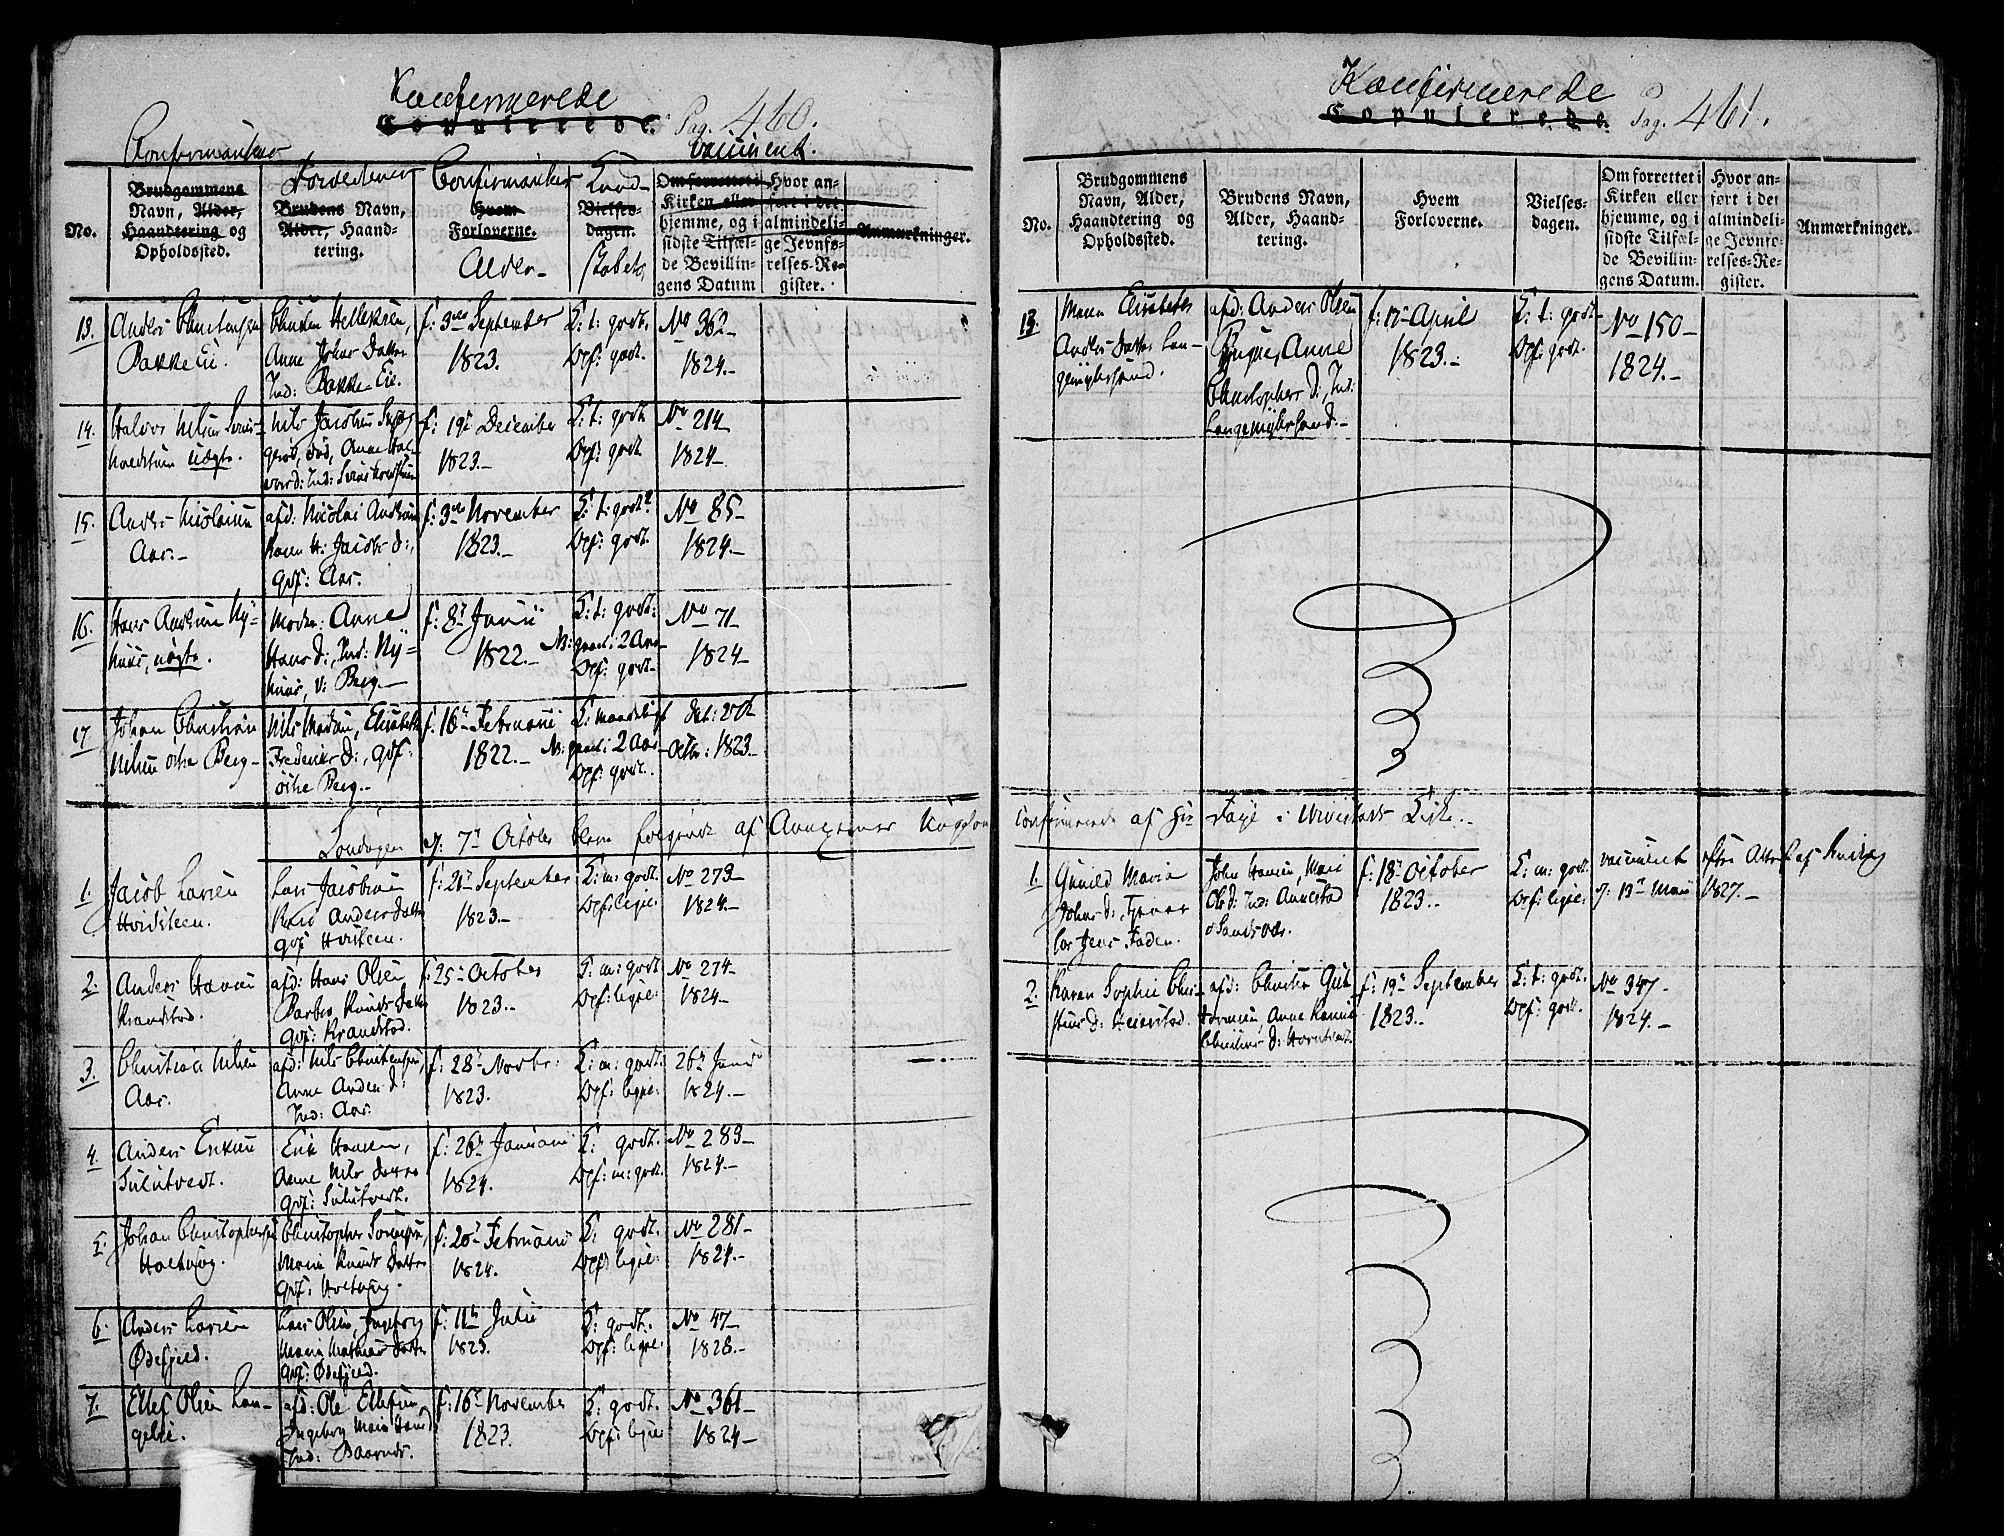 Konfirmerede
Copulerede. Pag. 460.
Confirmanters
Forældrenes
Confirmanters
Kund-
vaccinent.
No.
Brudgommens
Navn, Alder,
Haandtering og
Opholdssted.
Brudens Navn,
Alder, Haand-
tering.
Hvem
Forloverne.
Alder
Vielses-
dagen.
skabets
Om forrettet i
Kirken eller
hjemme, og i
sidste Tilfæl-
de Bevillin-
gens Datum
Hvor an-
ført i det
almindeli-
ge Jevnfø-
relses-Re-
gister.
Anmærkninger.
13.
Anders Christensen
Bakke Eie.
Christen Hellesen,
Anne Johns Datter
Ind: Bakke Eie.
f: 3die September
1823.
K: t: godt.
Opf: godt.
No 362
1824.
14.
Halvor Nielsen
Nils Jacobsen
f: 19de December
1823.
K: t: godt
Opf: godt
No 214
1824
15.
Anders Nicolaisen
Aas.
afd: Nicolai Andersen
Karen H: Jacobs D:,
Gdf: Aas.
f: 3die November
1823.
K: t: godt
Opf: godt.
No 85
1824
16.
Hans Andersen Ny-
huus, uægte.
Moder: Anne
Hans D:, Ind: Ny-
huus, v: Berg.
f: 8de Junii
1822.
K: t: godt:
Opf: godt.
No 71
1824
17
Johan Christian
Nilsen østre Berg
Nils Madsen, Elisabeth
Frederics D:, Gdf:
østre Berg.
f: 16de Februarii
1822.
K: maadeligt
Opf: godt.
Octbr: 1823.
Søndagen d: 7de October bleve følgende af Annexernes Ungdom
1.
Jacob Larsen
Hvidsteen.
Lars Jacobsen
Anders Datter
Gdf Hvidsteen.
f: 21de September
1823.
K: m: godt
Opf: ligel:
No 273
1824.
2.
Anders Hansen
Krandstad.
afd: Hans Olsen
Barbro Knuds Datter
Gdf: Krandstad.
f: 25de October
1823.
K: m: godt
Opf: ligel:
No 274
1824.
3.
Christian Nilsen
Aas.
afd: Nils Christensen,
Anne Anders D:
Ind: Aas.
f: 28de Novbr:
1823.
K: m: godt:
Opf: ligel:
26de Junii
1824.
4.
Anders Ericsen
Sulutvedt.
Erik Hansen,
Anne Nils Datter
Gdf: Sulutvedt.
f: 26de Januarii
1824.
K: godt.
Opf: m: godt.
No 289
1824.
5.
Johan Christophersen
Holtung.
Christopher Sørensen,
Maria Knuds Datter
Gdf: Holtung.
f: 20de Februarii
1824.
K: godt.
Opf: ligel:
No 281
1824.
6.
Anders Larsen
Ødefjeld.
Lars Olsen, Ingeborg
Maria Mathias Datter
Gdf: Ødefjeld.
f: 11te Julii
1823.
K: godt.
Opf: ligel:
No 47
1828.
7.
Ellef Olsen Lan-
gelie.
afd: Ole Ellefsen
Ingeborg Maria Hans D
Ind: Baarnæs.
f: 16de November
1823.
K: godt.
Opf: ligel:
No 361
1824
Konfirmerede
Copulerede. Pag. 461.
No.
Brudgommens
Navn, Alder,
Haandtering og
Opholdssted.
Brudens Navn,
Alder, Haand-
tering.
Hvem
Forloverne.
Vielses-
dagen.
Om forrettet i
Kirken eller
hjemme, og i
sidste Tilfæl-
de Bevillin-
gens Datum.
Hvor an-
ført i det
almindeli-
ge Jevnfø-
relses-Re-
gister.
Anmærkninger.
13.
Maren Elisabeth
Anders Datter Lan-
gemyhrsand.
afd: Anders Olsen
Bugge, Anne
Christophers D:, Ind:
Langemyhrsand.
f: 12te April
1823.
K: t: godt
Opf: godt.
No 150
1824.
Confirmerede af Hr Faye i Kirke.
1.
Gunild Maria
Johns D:, Tjener
hos Jens Foden.
John Hansen, Mari
Ols D: Ind: Annestad
i Sandsvær.
f: 18de October
1823.
K: m: godt.
Opf: ligel:
vaccineret efter Attest af
d: 13de Maii 1827.
2.
Karen Sophie Chri-
stens D: Heierstad.
afd: Christen Gut-
tormsen Anne Karine
Christens D:
f: 19de September
1823.
K: t: godt.
Opf: godt.
No 347
1824.